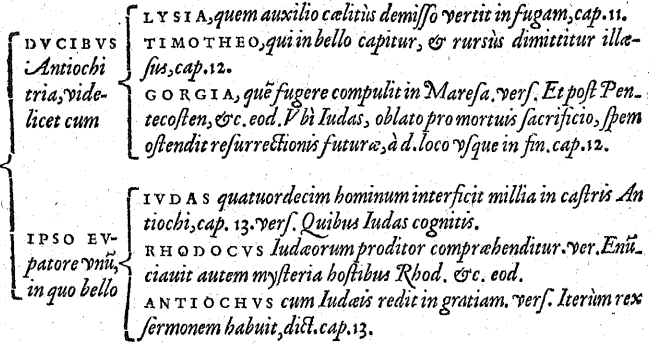 DVCIBVS
Antiochi
tria, vide-
licet cum
LYSIA, quem auxilio cælitùs demisso vertit in fugam, cap. 11.
TIMOTHEO, qui in bello capitur, & rursùs dimittitur illæ-
sus, cap. 12.
GORGIA, quẽ fugere compulit in Maresa. vers. Et post Pen-
tecosten, &c. eod. Vbì Iudas, oblato pro mortuis sacrificio, spem
ostendit resurrectionis futuræ, à d. loco vsque in fin. cap. 12.
IPSO EV-
patore vnũ,
in quo bello
IVDAS quatuordecim hominum interficit millia in castris An
tiochi, cap. 13. vers. Quibus Iudas cognitis.
RHODOCVS Iudæorum proditor compræhenditur. ver. Enũ-
ciauit autem mysteria hostibus Rhod. &c. eod.
ANTIOCHVS cum Iudæis redit in gratiam. vers. Iterùm rex
sermonem habuit, dict. cap. 13.